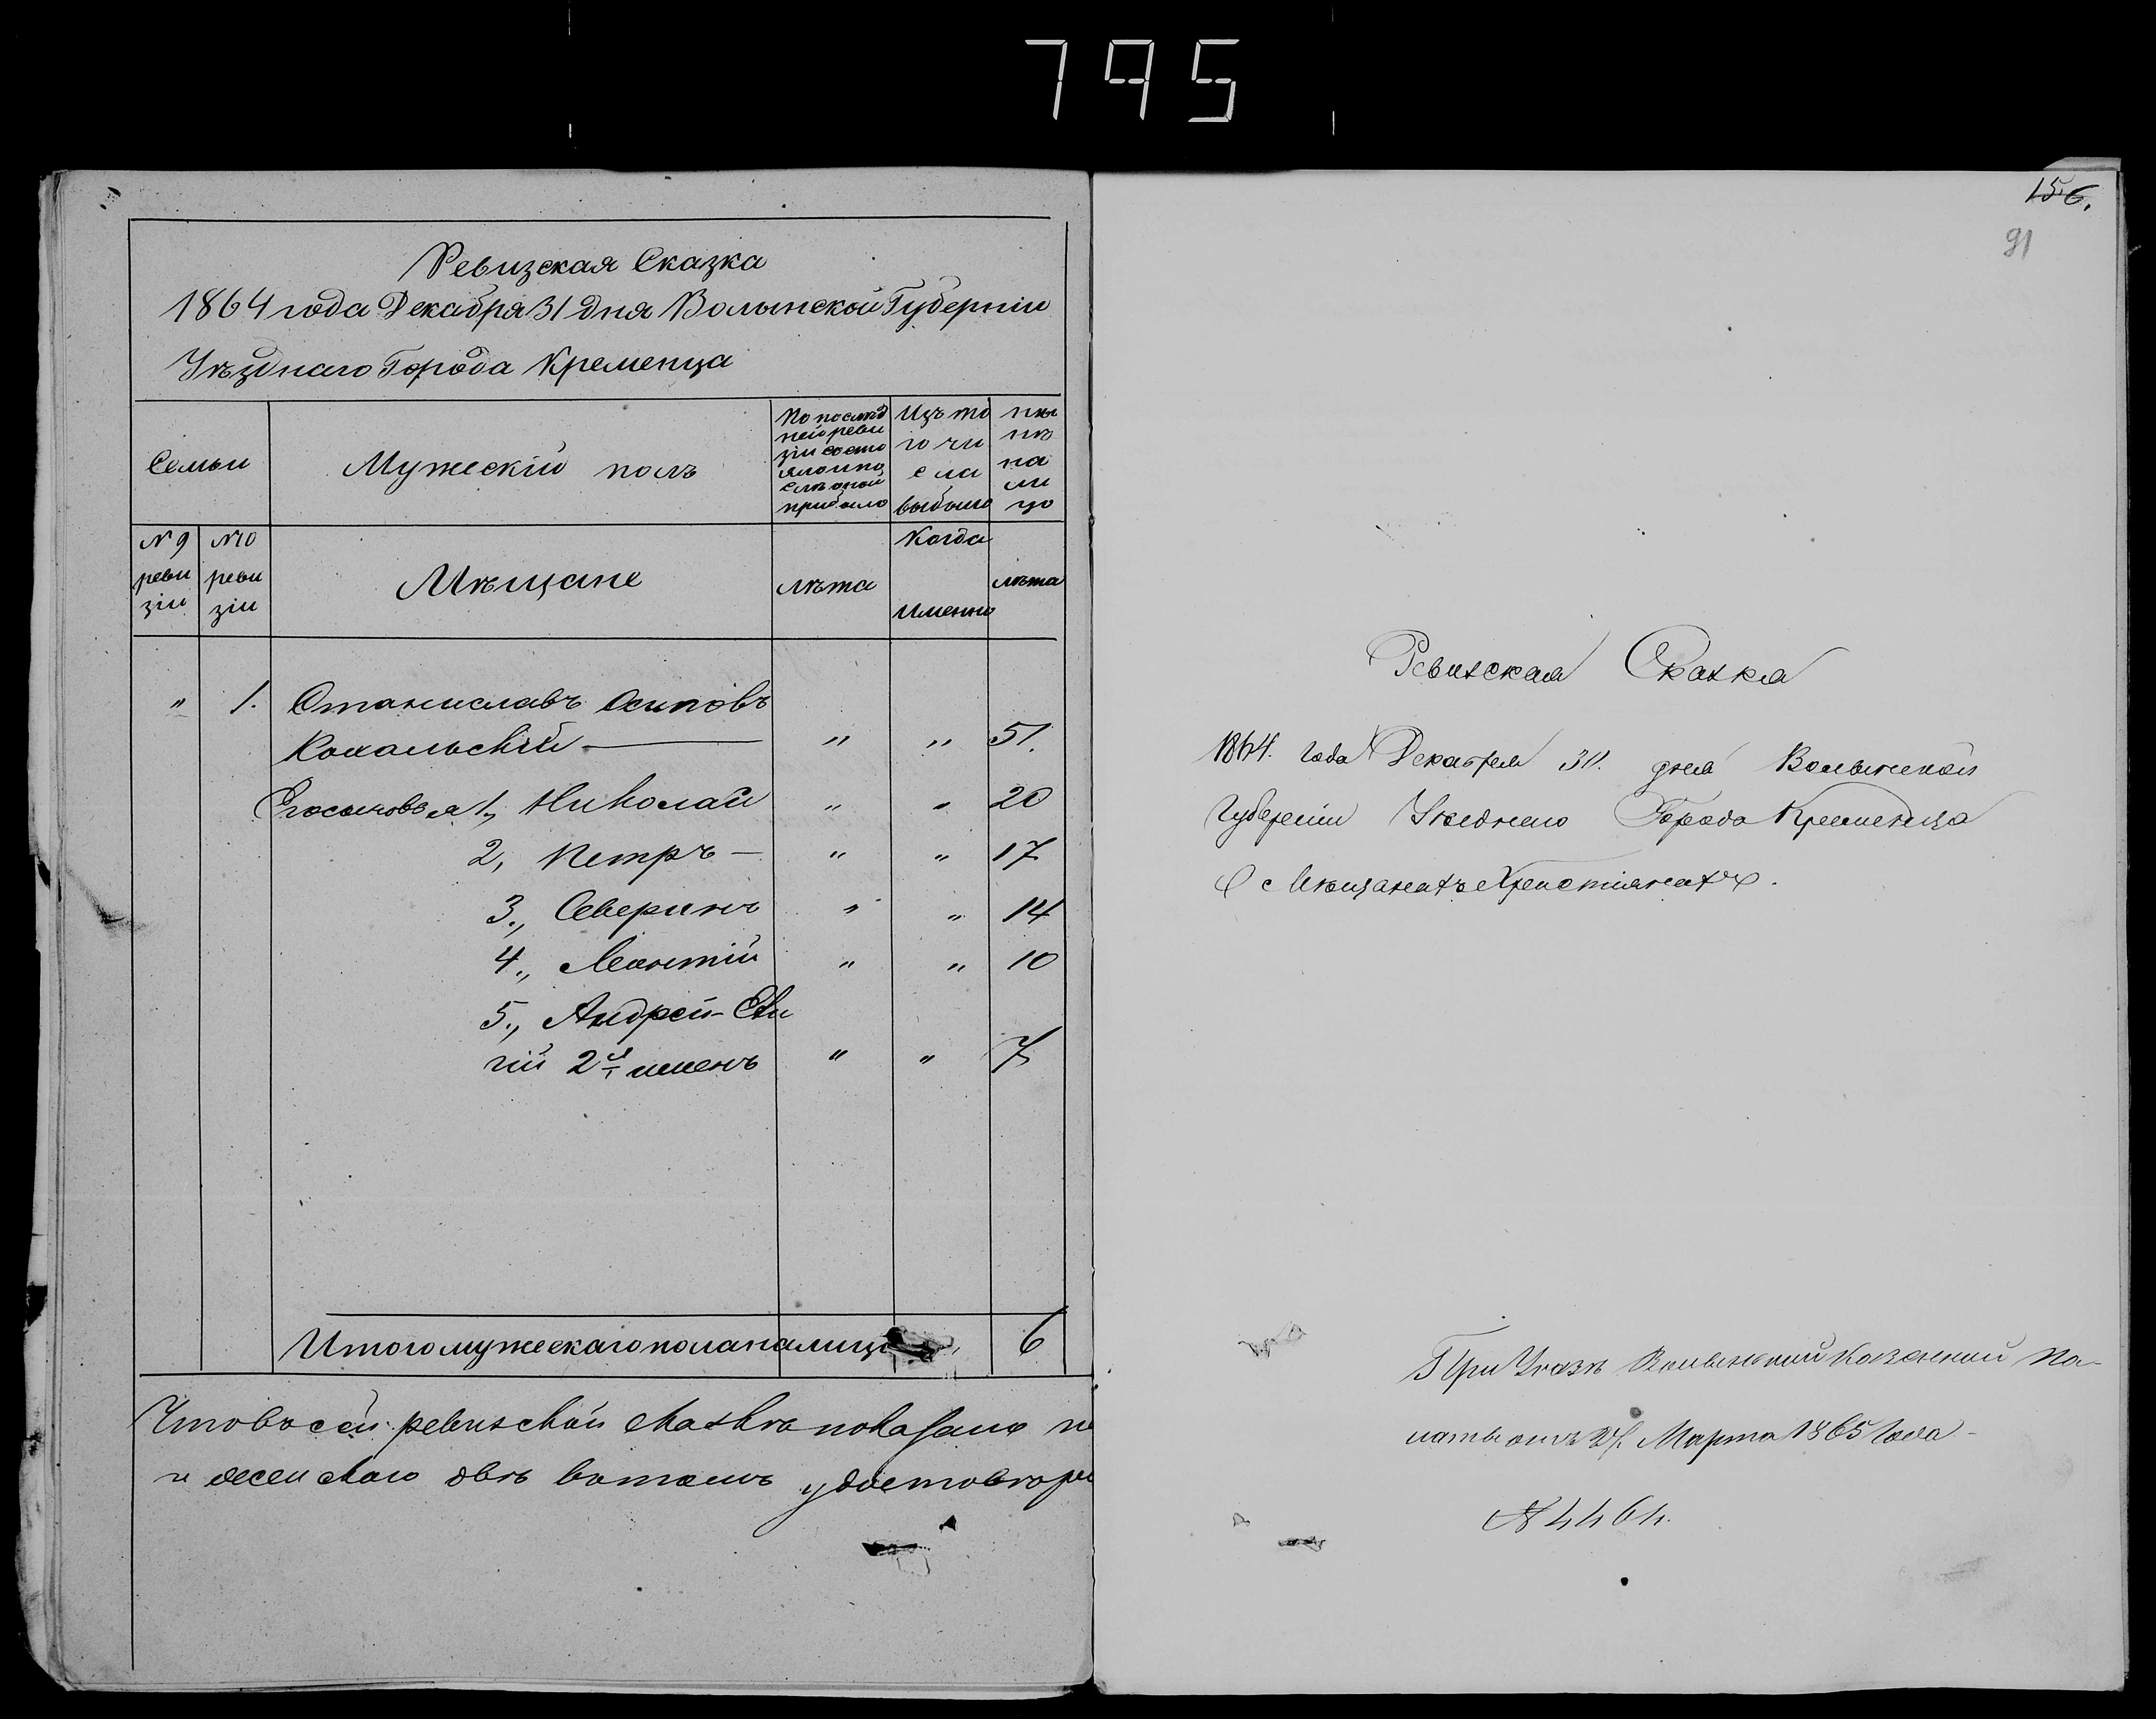 795
Ревизская Сказка
1864 года Декабря 31 дня Волынской Губерніи
Уѣзднаго Города Кременца
Семьи
Мужескій полъ
По послѣд
ней реви
зіи состо
яло и по
слѣ оной
прибыло
Изъ то
го чи
сла
выбыло
ны
нѣ
на
ли
цо
№ 9
реви
зіи
№ 10
реви
зіи
Мѣщане
лѣта
Когда
именно
лѣта
" 1. Станиславъ Осиповъ
Ковальскій — " " 51.
Его сыновья 1, Николай " " 20
2, Петръ — " " 17
3., Северинъ " " 14
4., Леонтій " " 10
5., Андрей-
гій 2х именъ " " 7
Итого мужескаго пола на лицо 6
Что въ сей ревизской сказкѣ показано
и женскаго двѣ въ томъ удостовѣри
156.
91
Ревизская Сказка
1864. года Декабря 31. дня Волынской
Губерніи Уѣзднаго Города Кременца
О Мѣщанахъ Христіанахъ.
При Указѣ Волынской Казенной Па-
латы отъ Марта 1865 года
№ 4464.